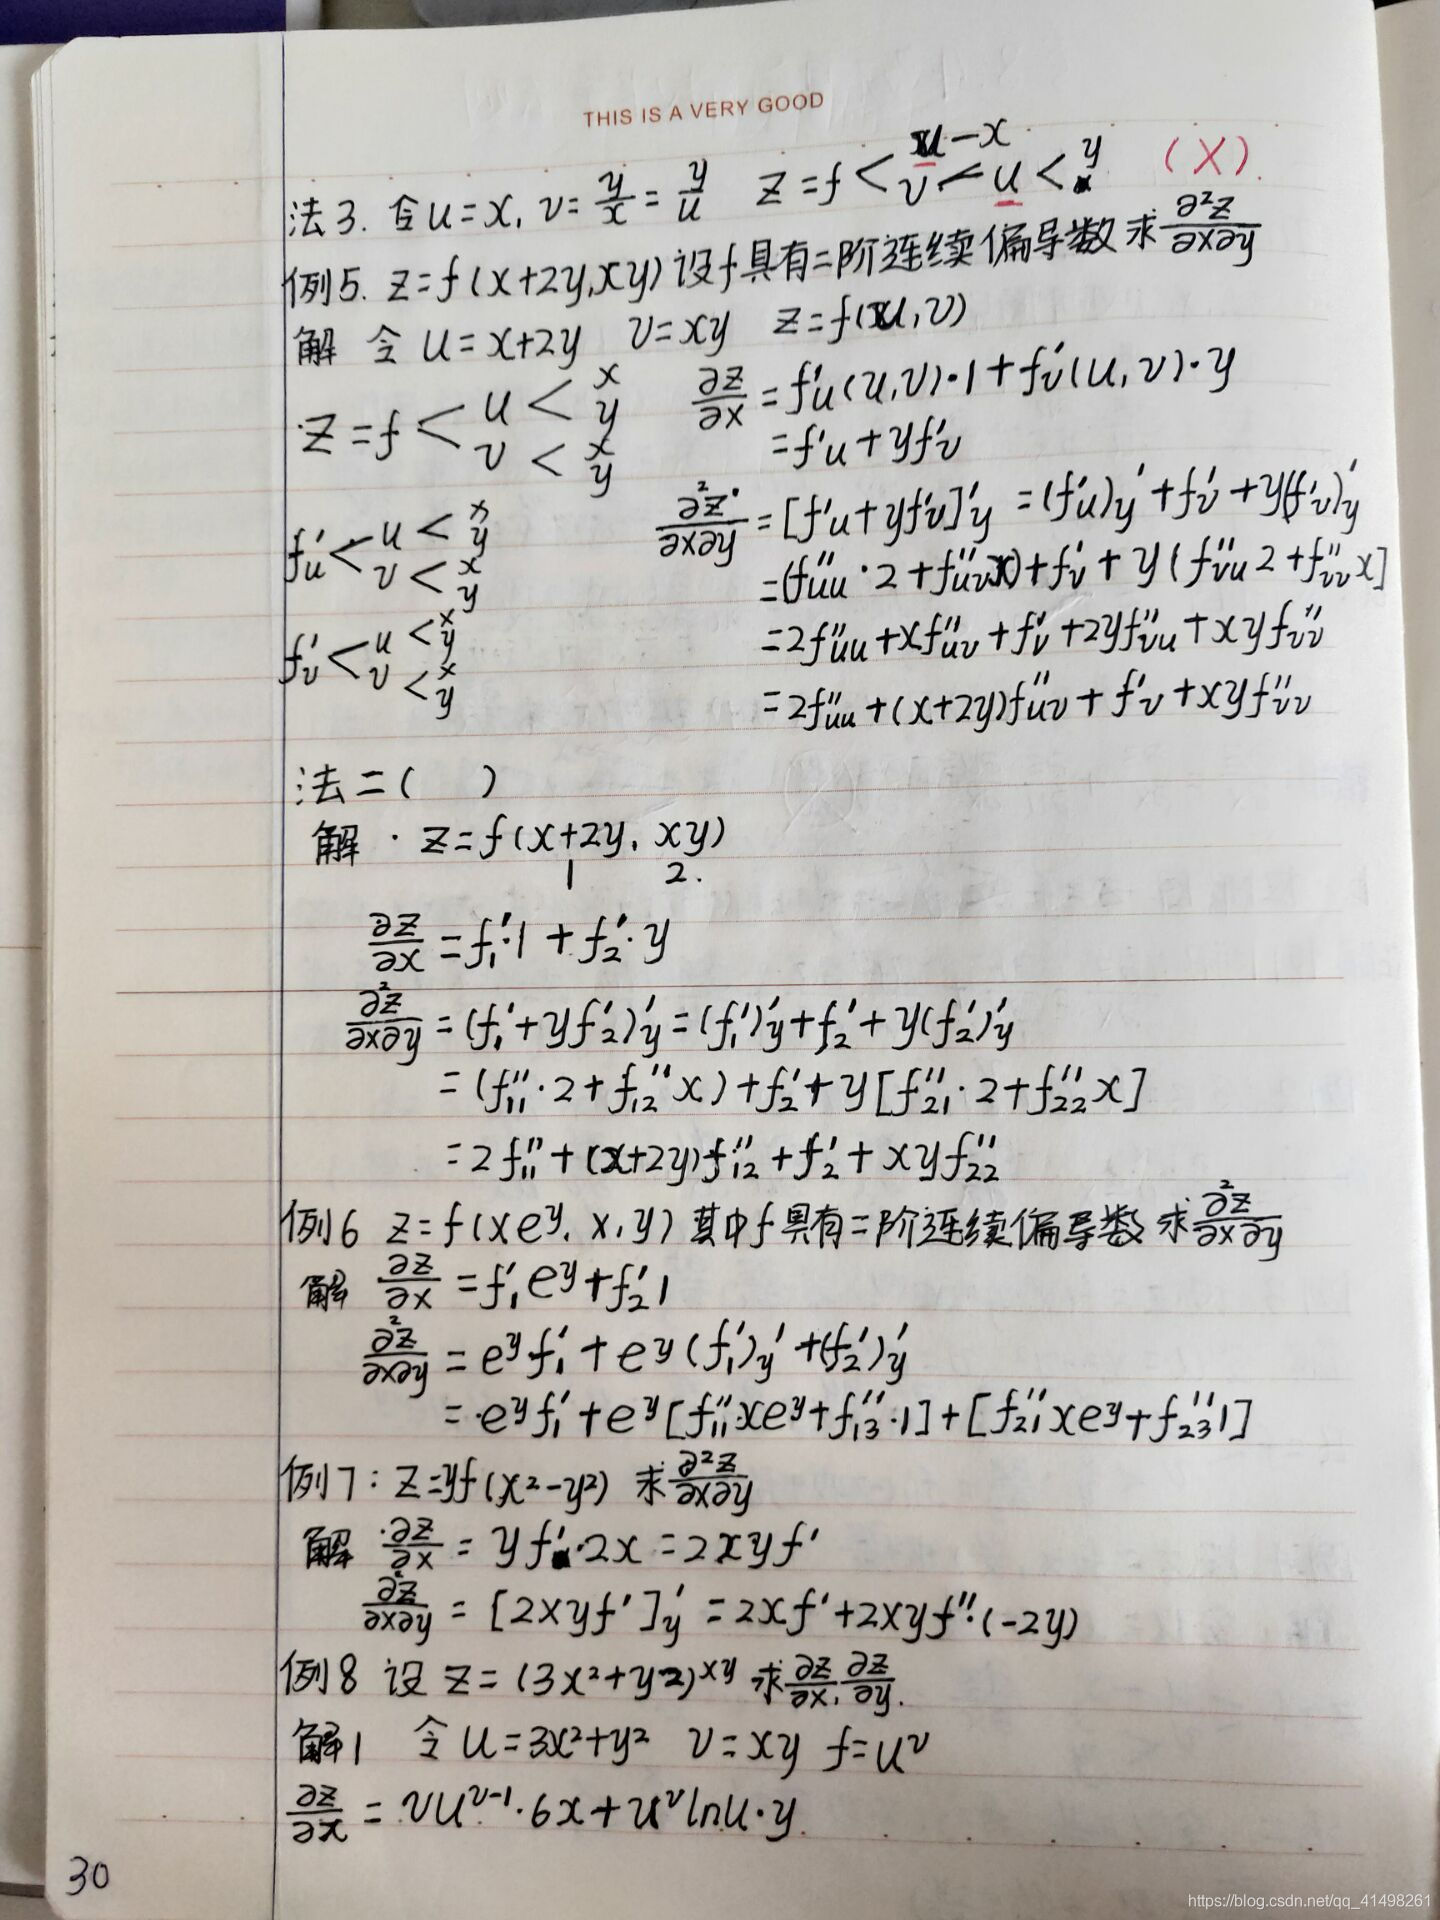 THIS IS A VERY GOOD
法3. 令u=x, v=y/x=y/u z=f< u-x v-u< y x (X).
例5. z=f(x+2y,xy)设f具有二阶连续偏导数求∂²z/∂x∂y
解 令 u=x+2y v=xy z=f(u,v)
z=f< u< x y v< x y ∂z/∂x=f'u(u,v)·1+f'v(u,v)·y
=f'u+yf'v
f'u< u< x y v< x y ∂²z/∂x∂y=[f'u+yf'v]'y =(f'u)'y+f'v+y(f'v)'y
=(f''uu·2+f''uvx)+f'v+y(f''vu2+f''vvx]
f'v< u< x y v< x y =2f''uu+xf''uv+f'v+2yf''vu+xyf''vv
=2f''uu+(x+2y)f''uv+f'v+xyf''vv
法二( )
解·z=f(x+2y, xy)
1 2.
∂z/∂x=f₁'·1+f₂'·y
∂²z/∂x∂y=(f₁'+yf₂')'y=(f₁')'y+f₂'+y(f₂')'y
=(f₁₁''·2+f₁₂''x)+f₂'+y[f₂₁''·2+f₂₂''x]
=2f₁₁''+(x+2y)f₁₂''+f₂'+xyf₂₂''
例6 z=f(xe^y, x,y)其中f具有二阶连续偏导数 求∂²z/∂x∂y
解 ∂z/∂x=f₁'e^y+f₂'1
∂²z/∂x∂y=e^yf₁'+e^y(f₁')'y+(f₂')'y
=·e^yf₁'+e^y[f₁₁''·xe^y+f₁₃''·1]+[f₂₁''xe^y+f₂₃''1]
例7: z=yf(x²-y²) 求∂²z/∂x∂y
解 ∂z/∂x=yf'·2x=2xyf'
∂²z/∂x∂y=[2xyf']'y=2xf'+2xyf''·(-2y)
例8 设 z=(3x²+y²)^xy 求∂z/∂x, ∂z/∂y.
解1 令u=3x²+y² v=xy f=u^v
∂z/∂x=vu^(v-1)·6x+u^vlnu·y.
30
https://blog.csdn.net/qq_41498261